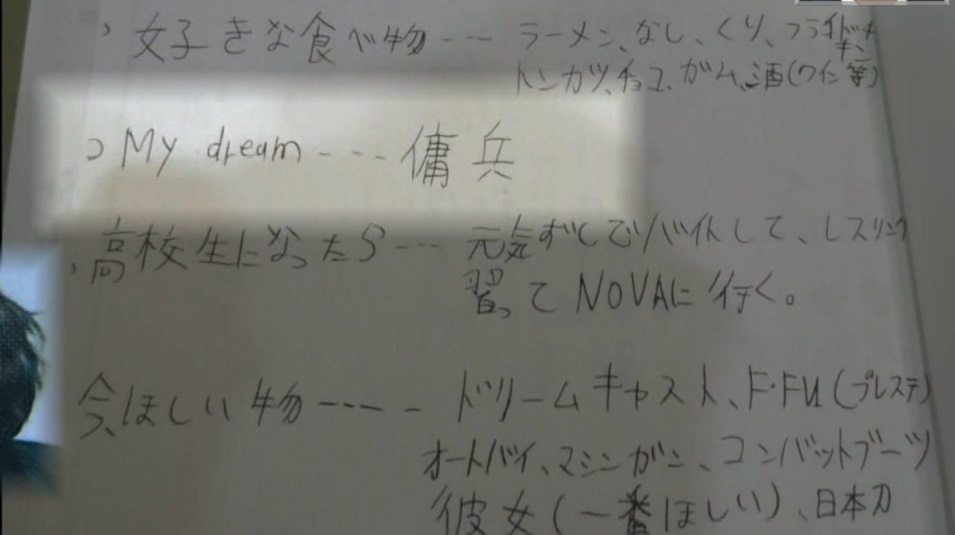 、好きな食べ物---- ラーメン、なし、くり、フライドチキン
トンカツ、チョコ、ガム、酒(ワイン等)
、My dream ---- 傭兵
、高校生になったら---- 元気ずしでバイトして、レスリング
習ってNOVAに行く。
今、ほしい物----- ドリームキャスト、F・FⅧ(プレステ)
オートバイ、マシンガン、コンバットブーツ
彼女(一番ほしい)、日本刀